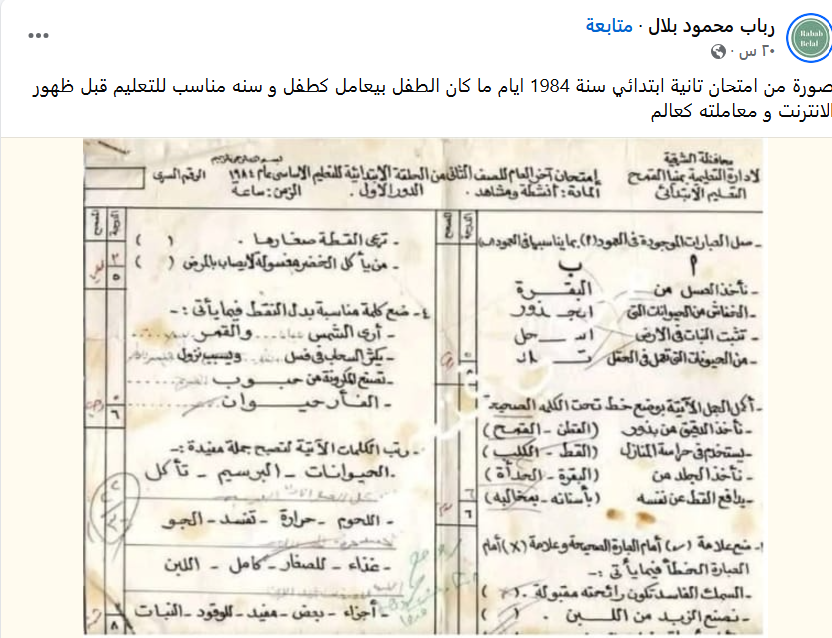 رباب محمود بلال · متابعة
٢٠ س ·
Rabab Belal
صورة من امتحان تانية ابتدائي سنة 1984 ايام ما كان الطفل بيعامل كطفل و سنه مناسب للتعليم قبل ظهور
الانترنت و معاملته كعالم
محافظة الشرقية
لادارة التعليمية بمنيا القمح
التعليم الابتدائى
إمتحان آخر العام للصف الثانى من الحلقة الابتدائية للتعليم الاساسى عام ١٩٨٤
المادة: أنشطة ومشاهد . الدور الأول . الزمن: ساعة
الرقم السرى
ـ صل العبارات الموجودة فى العمود (٢) بما يناسبها فى العمود (ب)
٢ ب
ـ نأخذ العسل من البقرة
ـ الخفاش من الحيوانات التى
ـ تثبت النبات فى الارض
ـ من الحيوانات التى تعمل فى الحقل
ـ أكمل الجمل الآتية بوضع خط تحت الكلمه الصحيحة
ـ نأخذ الدقيق من بذور (القطن ـ القمح)
ـ يستخدم فى حراسة المنازل (القط ـ الكلب)
ـ نأخذ الجلد من (البقرة ـ الحدأة)
ـ يدافع القط عن نفسه (بأسنانه ـ بمخالبه)
ـ ضع علامة (✓) أمام العبارة الصحيحة وعلامة (X) أمام
العبارة الخطأ فيما يأتى :ـ
ـ السمك الفاسد تكون رائحته مقبولة . ( )
ـ نصنع الزبد من اللبن . ( )
ـ ترى القطة صغارها . ( )
ـ من يأكل الخضر مغسولة لايصاب بالمرض ( )
٤ـ ضع كلمة مناسبة بدل النقط فيما يأتى :ـ
ـ أرى الشمس ..... والقمر .....
ـ يكثر السحاب فى فصل ..... ويسبب نزول .....
ـ تصنع المكرونة من حبوب .....
ـ الفأر حيوان .....
ـ رتب الكلمات الآتية لتصبح جملة مفيدة :ـ
ـ الحيوانات ـ البرسيم ـ تأكل
ـ اللحوم ـ حرارة ـ تفسد ـ الجو
ـ غذاء ـ للصغار ـ كامل ـ اللبن
ـ أجزاء ـ بعض ـ مفيد ـ للوقود ـ النبات